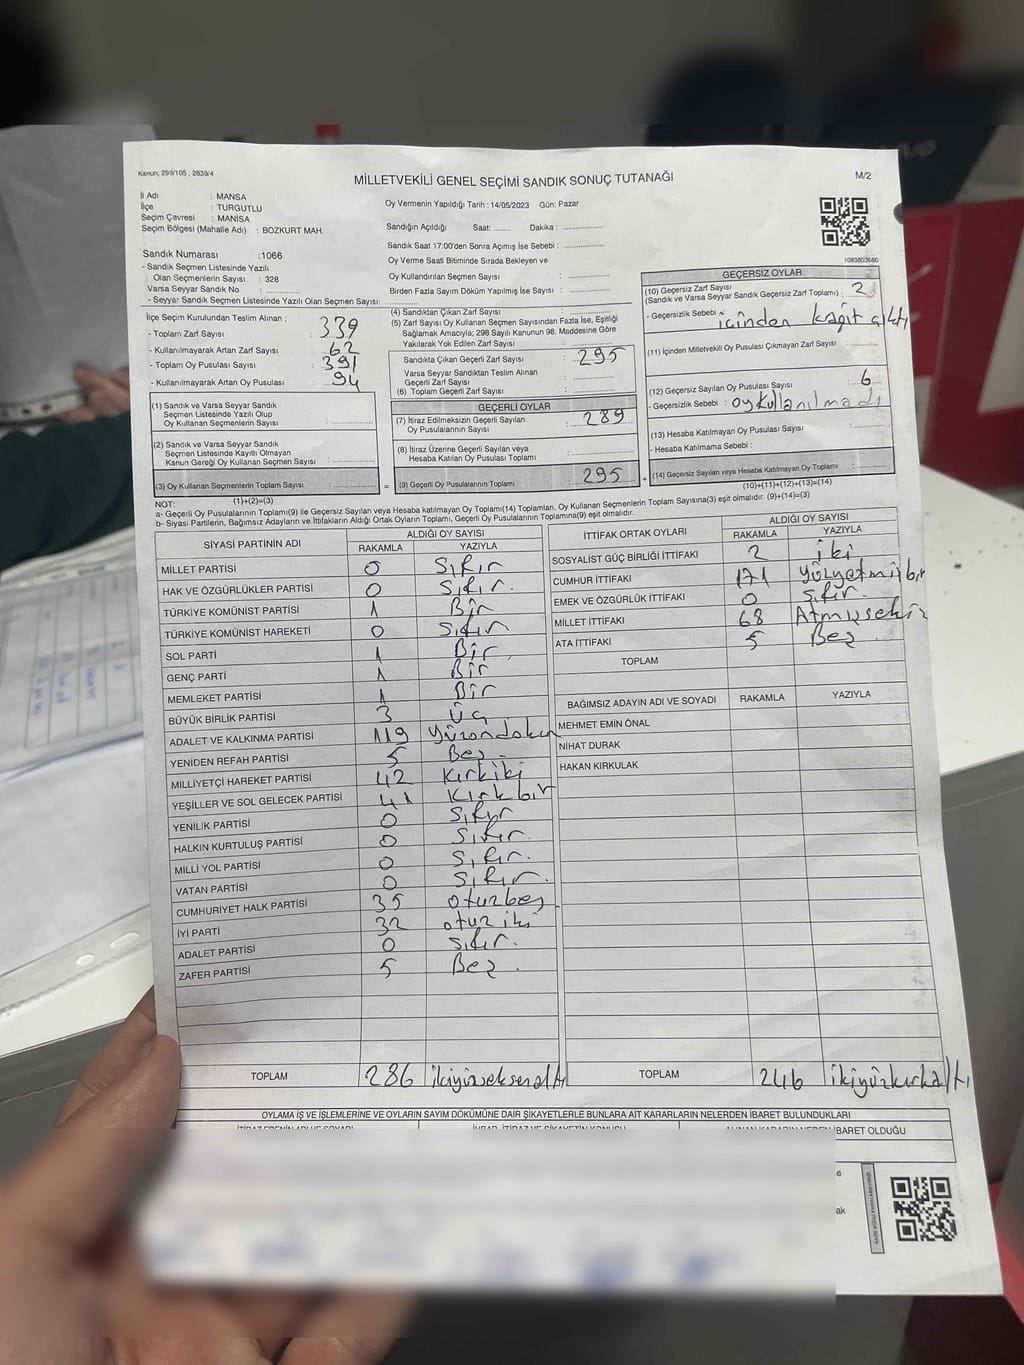 Kanun, 298/105 , 2839/4
MİLLETVEKİLİ GENEL SEÇİMİ SANDIK SONUÇ TUTANAĞI
M/2
İl Adı : MANSA
İlçe : TURGUTLU
Seçim Çevresi : MANİSA
Seçim Bölgesi (Mahalle Adı) : BOZKURT MAH.
Oy Vermenin Yapıldığı Tarih : 14/05/2023 Gün: Pazar
Sandığın Açıldığı Saat: ........ Dakika : ................
Sandık Saat 17:00'den Sonra Açımış İse Sebebi : ................
Oy Verme Saati Bitiminde Sırada Bekleyen ve
Oy Kullandırılan Seçmen Sayısı : ................
Birden Fazla Sayım Döküm Yapılmış İse Sayısı : ................
1083803560
Sandık Numarası :1066
- Sandık Seçmen Listesinde Yazılı
Olan Seçmenlerin Sayısı : 328
Varsa Seyyar Sandık No : ................
- Seyyar Sandık Seçmen Listesinde Yazılı Olan Seçmen Sayısı: ................
İlçe Seçim Kurulundan Teslim Alınan :
- Toplam Zarf Sayısı : 339
- Kullanılmayarak Artan Zarf Sayısı : 62
- Toplam Oy Pusulası Sayısı : 391
- Kullanılmayarak Artan Oy Pusulası : 94
(1) Sandık ve Varsa Seyyar Sandık
Seçmen Listesinde Yazılı Olup
Oy Kullanan Seçmenlerin Sayısı : ................
(2) Sandık ve Varsa Seyyar Sandık
Seçmen Listesinde Kayıtlı Olmayan
Kanun Gereği Oy Kullanan Seçmen Sayısı : ................
(3) Oy Kullanan Seçmenlerin Toplam Sayısı : ................
(1)+(2)=(3)
(4) Sandıktan Çıkan Zarf Sayısı : ................
(5) Zarf Sayısı Oy Kullanan Seçmen Sayısından Fazla İse, Eşitliği
Sağlamak Amacıyla; 298 Sayılı Kanunun 98. Maddesine Göre
Yakılarak Yok Edilen Zarf Sayısı : ................
Sandıkta Çıkan Geçerli Zarf Sayısı : 295
Varsa Seyyar Sandıktan Teslim Alınan
Geçerli Zarf Sayısı : ................
(6) Toplam Geçerli Zarf Sayısı : ................
GEÇERLİ OYLAR
(7) İtiraz Edilmeksizin Geçerli Sayılan
Oy Pusulalarının Sayısı : 289
(8) İtiraz Üzerine Geçerli Sayılan veya
Hesaba Katılan Oy Pusulası Toplamı : ................
= (9) Geçerli Oy Pusulalarının Toplamı : 295 +
GEÇERSİZ OYLAR
(10) Geçersiz Zarf Sayısı
(Sandık ve Varsa Seyyar Sandık Geçersiz Zarf Toplamı) : 2
- Geçersizlik Sebebi : içinden kağıt çıktı
(11) İçinden Milletvekili Oy Pusulası Çıkmayan Zarf Sayısı : ................
(12) Geçersiz Sayılan Oy Pusulası Sayısı : 6
- Geçersizlik Sebebi : oy kullanılmadı
(13) Hesaba Katılmayan Oy Pusulası Sayısı : ................
- Hesaba Katılmama Sebebi : ................
(14) Geçersiz Sayılan veya Hesaba Katılmayan Oy Toplamı : ................
(10)+(11)+(12)+(13)=(14)
NOT:
a- Geçerli Oy Pusulalarının Toplamı(9) ile Geçersiz Sayılan veya Hesaba katılmayan Oy Toplamı(14) Toplamları, Oy Kullanan Seçmenlerin Toplam Sayısına(3) eşit olmalıdır. (9)+(14)=(3)
b- Siyasi Partilerin, Bağımsız Adayların ve İttifakların Aldığı Ortak Oyların Toplamı, Geçerli Oy Pusulalarının Toplamına(9) eşit olmalıdır.
SİYASİ PARTİNİN ADI ALDIĞI OY SAYISI
RAKAMLA YAZIYLA
MİLLET PARTİSİ 0 Sıfır
HAK VE ÖZGÜRLÜKLER PARTİSİ 0 Sıfır.
TÜRKİYE KOMÜNİST PARTİSİ 1 Bir
TÜRKİYE KOMÜNİST HAREKETİ 0 Sıfır
SOL PARTİ 1 Bir
GENÇ PARTİ 1 Bir
MEMLEKET PARTİSİ 1 Bir
BÜYÜK BİRLİK PARTİSİ 3 Üç
ADALET VE KALKINMA PARTİSİ 119 Yüzondokuz
YENİDEN REFAH PARTİSİ 5 Beş.
MİLLİYETÇİ HAREKET PARTİSİ 42 Kırkiki
YEŞİLLER VE SOL GELECEK PARTİSİ 41 Kırkbir
YENİLİK PARTİSİ 0 Sıfır
HALKIN KURTULUŞ PARTİSİ 0 Sıfır.
MİLLİ YOL PARTİSİ 0 Sıfır.
VATAN PARTİSİ 0 Sıfır.
CUMHURİYET HALK PARTİSİ 35 otuzbeş
İYİ PARTİ 32 otuz iki
ADALET PARTİSİ 0 Sıfır.
ZAFER PARTİSİ 5 Beş.
TOPLAM 286 ikiyüzseksenaltı
İTTİFAK ORTAK OYLARI ALDIĞI OY SAYISI
RAKAMLA YAZIYLA
SOSYALİST GÜÇ BİRLİĞİ İTTİFAKI 2 iki
CUMHUR İTTİFAKI 171 Yüzyetmişbir
EMEK VE ÖZGÜRLÜK İTTİFAKI 0 Sıfır.
MİLLET İTTİFAKI 68 Atmışsekiz
ATA İTTİFAKI 5 Beş
TOPLAM
BAĞIMSIZ ADAYIN ADI VE SOYADI RAKAMLA YAZIYLA
MEHMET EMİN ÖNAL
NİHAT DURAK
HAKAN KIRKULAK
TOPLAM 246 ikiyüzkırkaltı
OYLAMA İŞ VE İŞLEMLERİNE VE OYLARIN SAYIM DÖKÜMÜNE DAİR ŞİKAYETLERLE BUNLARA AİT KARARLARIN NELERDEN İBARET BULUNDUKLARI
İBARET OLDUĞU